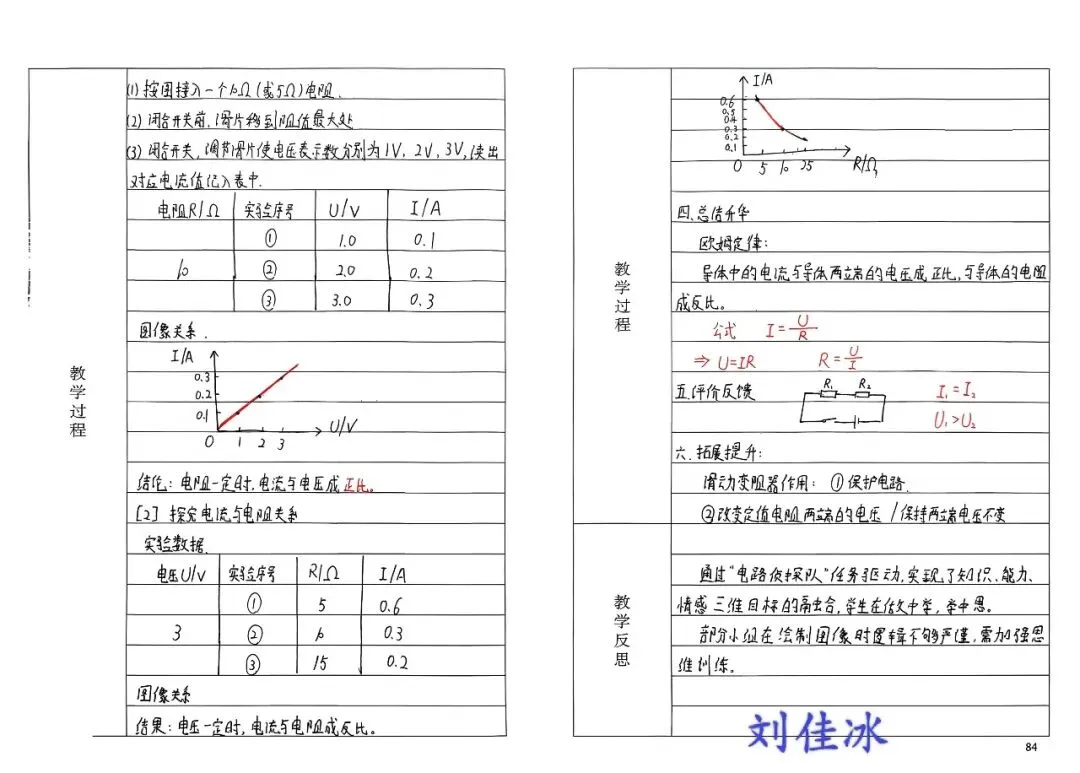 教学过程
(1) 按图接入一个10Ω(或5Ω)电阻.
(2) 闭合开关前,滑片移到阻值最大处
(3) 闭合开关,调节滑片使电压表示数分别为1V, 2V, 3V,读出
对应电流值记入表中.
电阻R/Ω 实验序号 U/V I/A
① 1.0 0.1
10 ② 2.0 0.2
③ 3.0 0.3
图像关系.
I/A
0.3
0.2
0.1
0 1 2 3 U/V
结论: 电阻一定时,电流与电压成正比。
[2] 探究电流与电阻关系
实验数据
电压U/V 实验序号 R/Ω I/A
① 5 0.6
3 ② 10 0.3
③ 15 0.2
图像关系
结果: 电压一定时, 电流与电阻成反比。
教学过程
I/A
0.6
0.5
0.4
0.3
0.2
0.1
0 5 10 15 R/Ω
四. 总结升华
欧姆定律:
导体中的电流与导体两端的电压成正比,与导体的电阻
成反比。
公式 I=U/R
⇒ U=IR R=U/I
五.评价反馈 R₁ R₂ I₁=I₂
U₁>U₂
六. 拓展提升:
滑动变阻器作用: ①保护电路.
②改变定值电阻两端的电压 /保持两端电压不变
教学反思
通过“电路侦探队”任务驱动,实现了知识、能力、
情感三维目标的融合,学生在做中学,学中思。
部分小组在绘制图像时逻辑不够严谨,需加强思
维训练。
刘佳冰
84